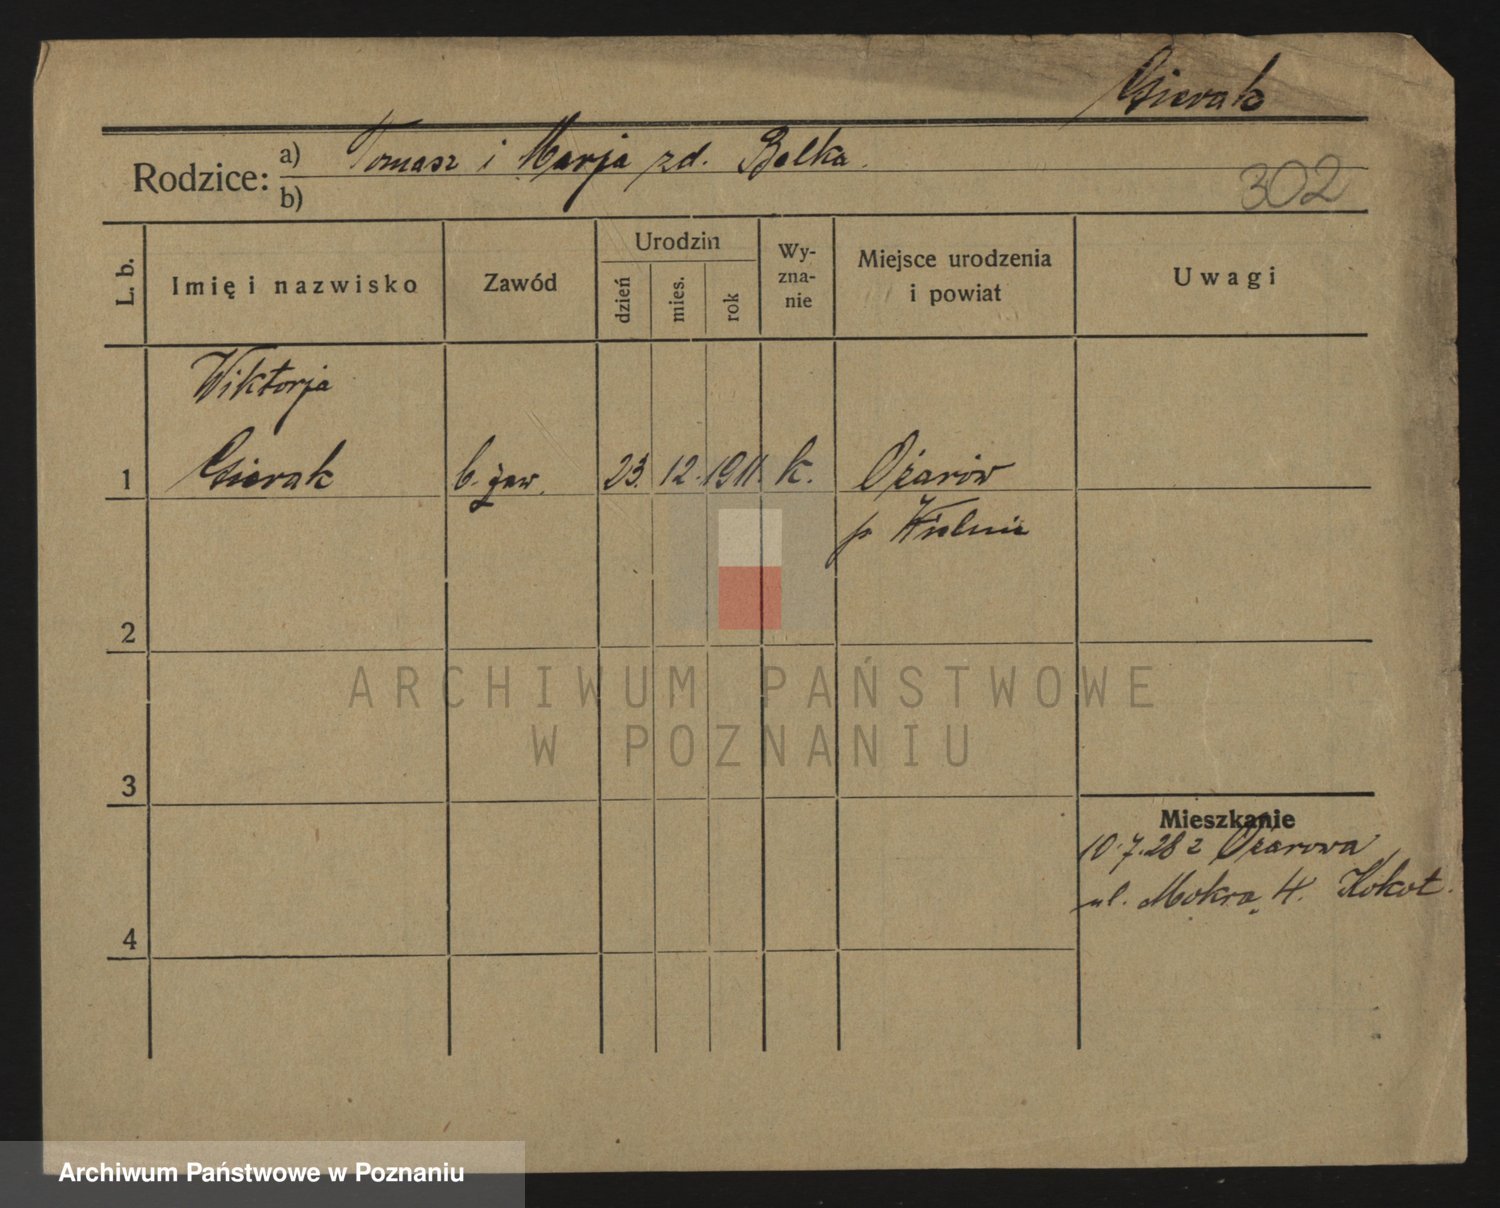 Gierak
Rodzice: a) Tomasz i Marja zd. Balka.
b)
302
L. b.
Imię i nazwisko
Zawód
Urodzin
dzień
mies.
rok
Wy-
zna-
nie
Miejsce urodzenia
i powiat
Uwagi
Wiktorja
1 Gierak b. zaw. 23. 12. 1911. k. Ożarów
p Wieluń
2
3
4
Mieszkanie
10.7.28 z Ożarowa
ul. Mokra 4. Kokot.
ARCHIWUM PAŃSTWOWE
W POZNANIU
Archiwum Państwowe w Poznaniu